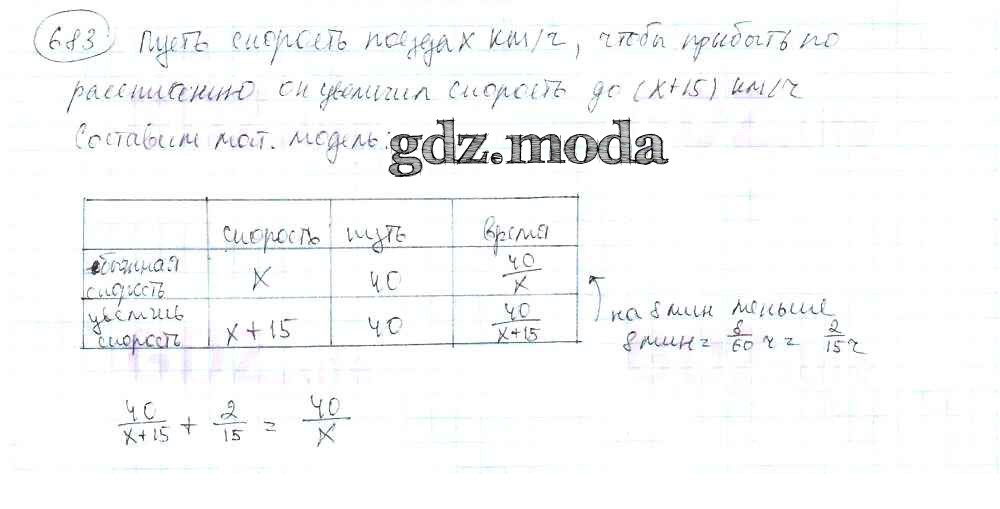 683 Пусть скорость поезда x км/ч, чтобы прибыть по
расписанию он увеличил скорость до (x+15) км/ч
Составим мат. модель:
gdz.moda
скорость путь время
обычная скорость x 40 40/x
увеличь скорость x+15 40 40/(x+15)
на 8 мин меньше
8 мин = 8/60 ч = 2/15 ч
40/(x+15) + 2/15 = 40/x